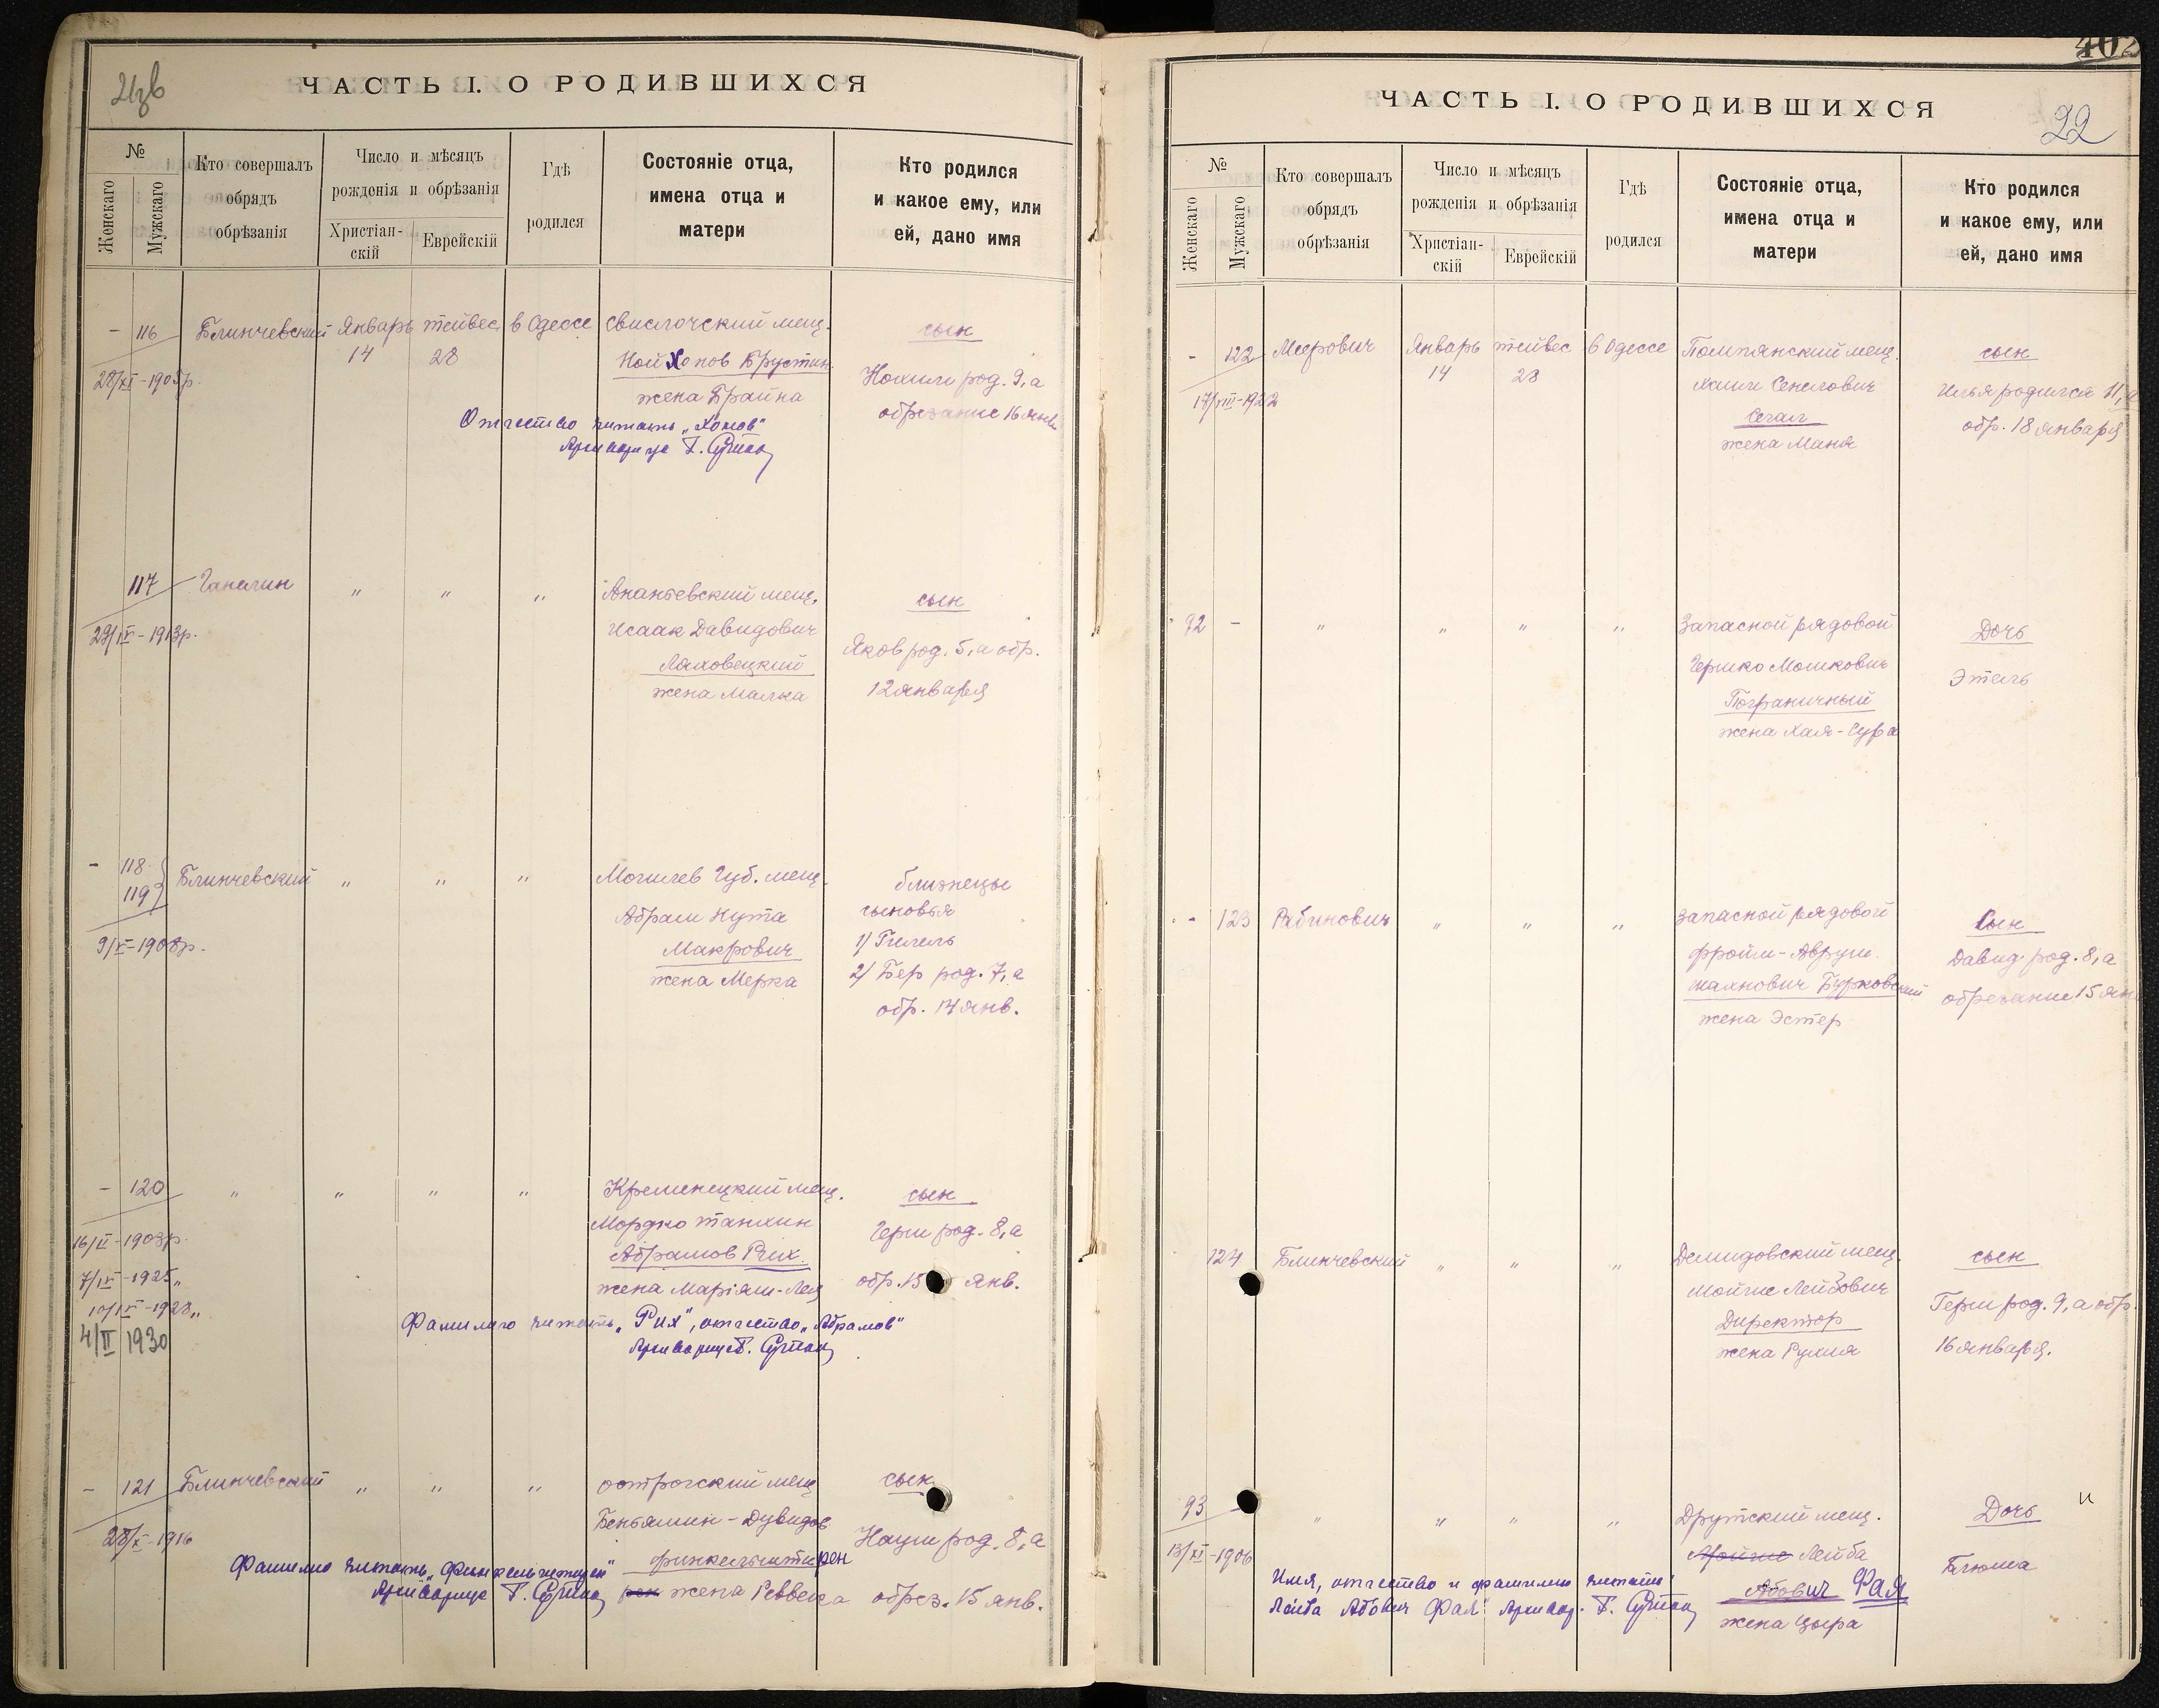 21зв
ЧАСТЬ I. О РОДИВШИХСЯ
№
Женскаго
Мужскаго
Кто совершалъ
обрядъ
обрѣзанія
Число и мѣсяцъ
рожденія и обрѣзанія
Христіан-
скій
Еврейскій
Гдѣ
родился
Состояніе отца,
имена отца и
матери
Кто родился
и какое ему, или
ей, дано имя
- 116 Блинчевский Январь тейвес в Одессе Свислочский мещ. сын
14 28 Ной Хонов Брустин
28/XI-1905р. Нохим род. 9, а
жена Брайна
обрезание 16 янв
Отчество читать „Хонов"
Архивариус
117 Ганелин " " " Ананьевский мещ. сын
29/IX-1913р. Исаак Давидович
Ляховецкий Яков род. 5, а обр.
жена Малка 12 января
- 118 119 Блинчевский " " " Могилев Губ. мещ. близнецы
Абрам Нута сыновья
9/X-1908р. Макрович 1) Гилель
жена Мерка 2) Бер род. 7, а
обр. 14 янв.
- 120 " " " " Кременецкий мещ. сын
Мордко Танхин Герш род. 8, а
16/II-1903р. Абрамов Рих
7/IX-1925„ жена Маріям-Лея обр. 15 янв.
10/IX-1928„
4/II 1930
Фамилию читать „Рих", отчество „Абрамов"
Архивариус
- 121 Блинчевский " " " Острогский мещ сын
Беньямин-Дувидов Наум род. 8, а
28/X-1916 Финкельштирен
жена Реввека обрез. 15 янв.
Фамилию читать
Архивариус
402
ЧАСТЬ I. О РОДИВШИХСЯ
22
№
Женскаго
Мужскаго
Кто совершалъ
обрядъ
обрѣзанія
Число и мѣсяцъ
рожденія и обрѣзанія
Христіан-
скій
Еврейскій
Гдѣ
родился
Состояніе отца,
имена отца и
матери
Кто родился
и какое ему, или
ей, дано имя
- 122 Меерович Январь тейвес в Одессе Помпянский мещ. сын
14 28
17/VIII-1922 Хаим Сендлович Илья родился 11, а
Сегал обр. 18 января
жена Маня
92 - " " " " Запасной рядовой Дочь
Гершко Мошкович Этель
Пограничный
жена Хая-Сура
- 123 Рабинович " " " запасной рядовой Сын
Фройм-Аврум Давид род. 8, а
Шахнович Бурковский обрезание 15 янв
жена Эстер
124 Блинчевский " " " Демидовский мещ. сын
Мойше Лейзович Герш род. 9, а обр.
Директор 16 января.
жена Рухля
93 " " " " Друтский мещ. Дочь
Мойше Лейба Блюма
13/XI-1906 Абович Фая
жена Цыра
Имя, отчество и фамилию читать:
Лейба Абович Фая